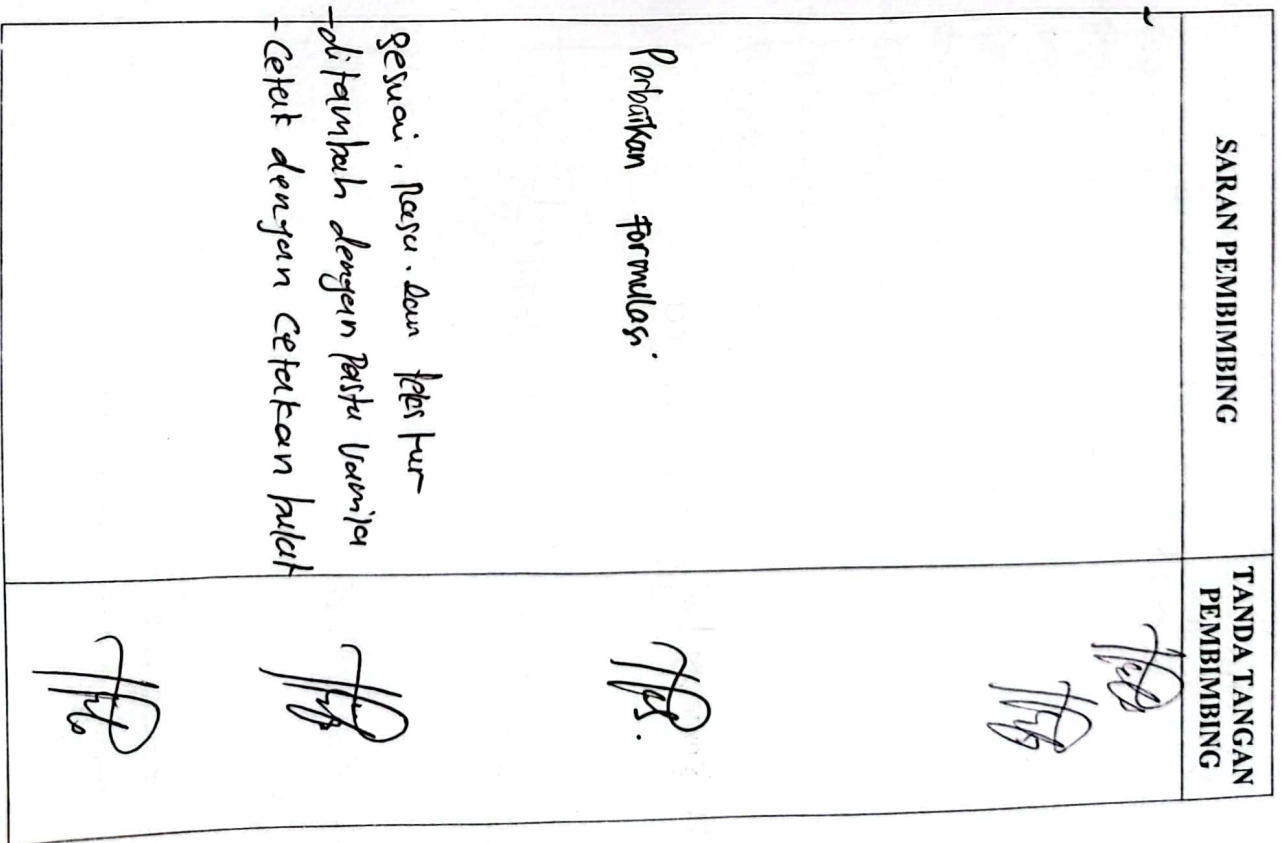 SARAN PEMBIMBING
TANDA TANGAN
PEMBIMBING
Perbaikan Formulasi
Sesuai. Rasa. dan tekstur
-ditambah dengan Pasta Vanila
-Cetak dengan Cetakan bulat